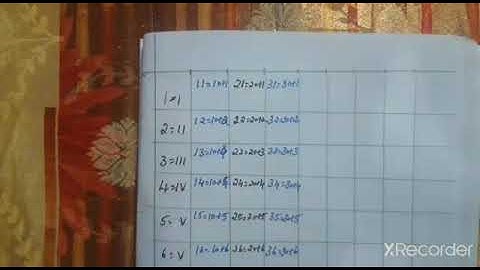 1=I 11=10+1 21=20+1 31=30+1
2=II 12=10+2 22=20+2 32=30+2
3=III 13=10+3 23=20+3 33=30+3
4=IV 14=10+4 24=20+4 34=30+4
5=V 15=10+5 25=20+5 35=30+5
6=V 16=10+6 26=20+6 36=30+6
XRecorder